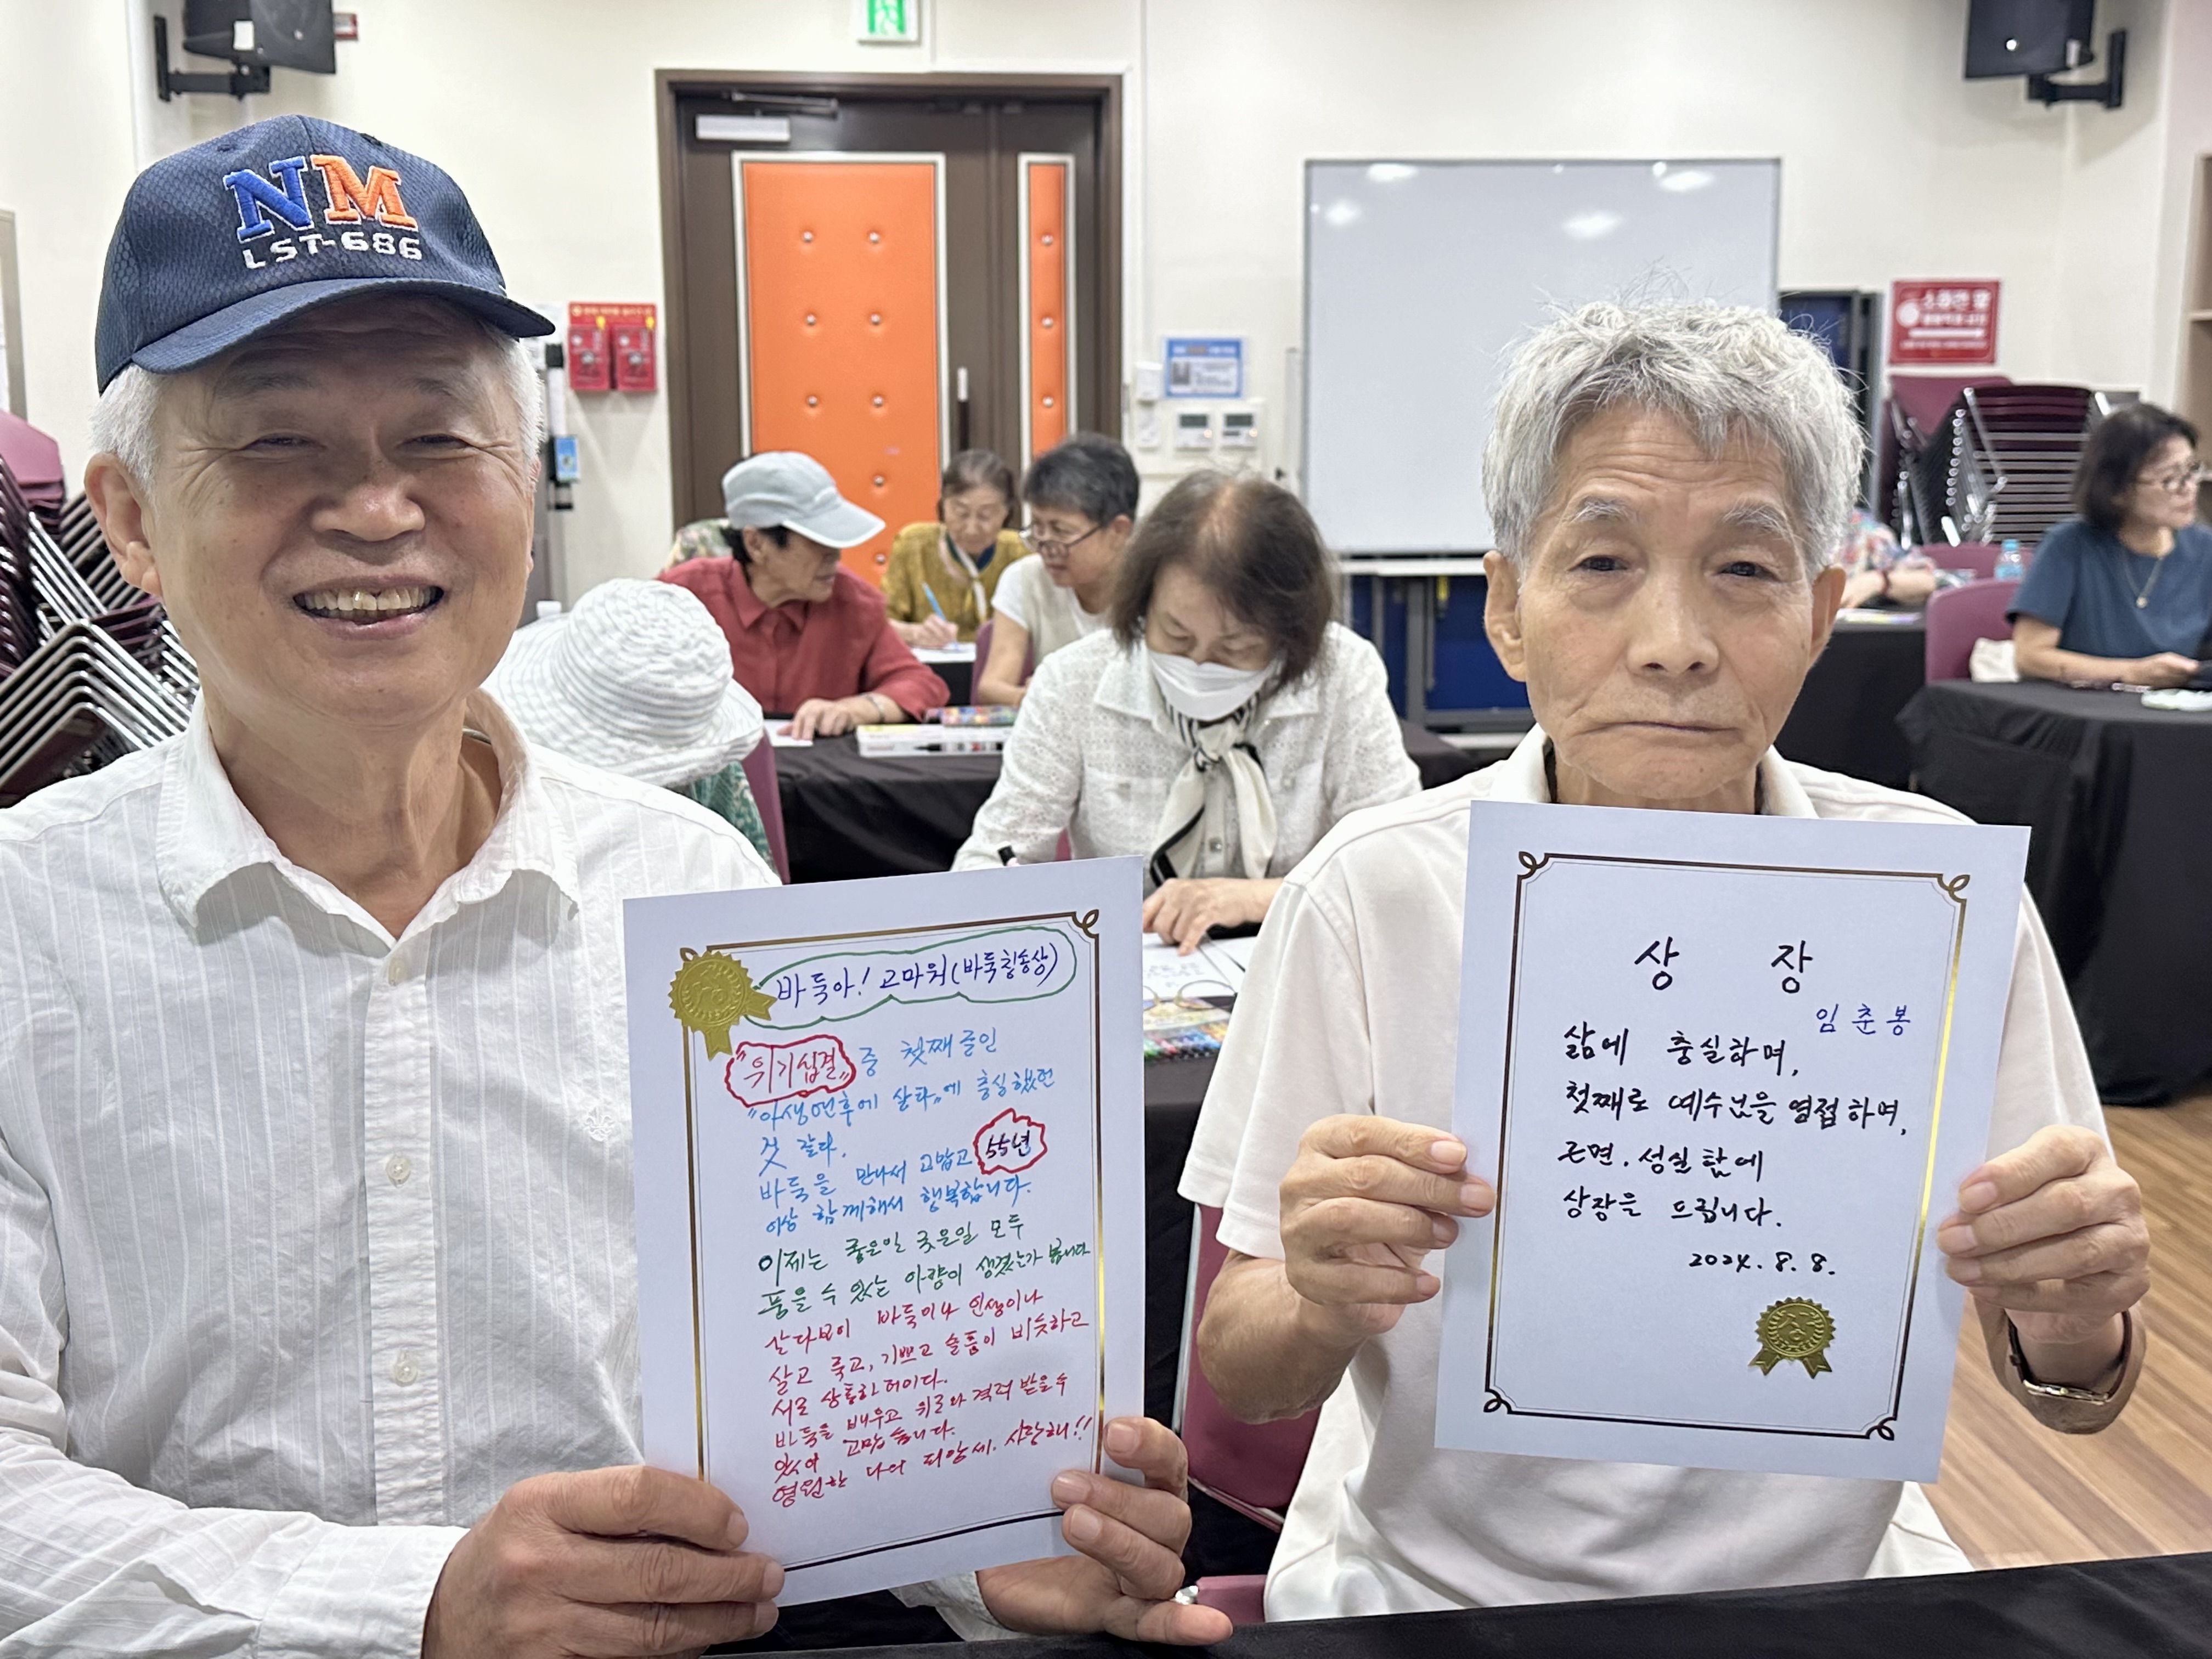 NM
LST-686
바둑아! 고마워(바둑칭송상)
"위기십결" 중 첫째 줄인
"아생연후에 살타"에 충실했던
것 같다.
바둑을 만나서 고맙고 55년
이상 함께해서 행복합니다.
이제는 좋은일 궂은일 모두
품을 수 있는 아량이 생겼는가 봅니다
살다보이 바둑이나 인생이나
살고 죽고, 기쁘고 슬픔이 비슷하고
서로 상통하더이다.
바둑을 배우고 위로와 격려 받을수
있어 고맙습니다.
영원한 나의 피앙세. 사랑해!!
상 장
임춘봉
삶에 충실하며,
첫째로 예수님을 영접하며,
근면. 성실함에
상장을 드립니다.
2024. 8. 8.